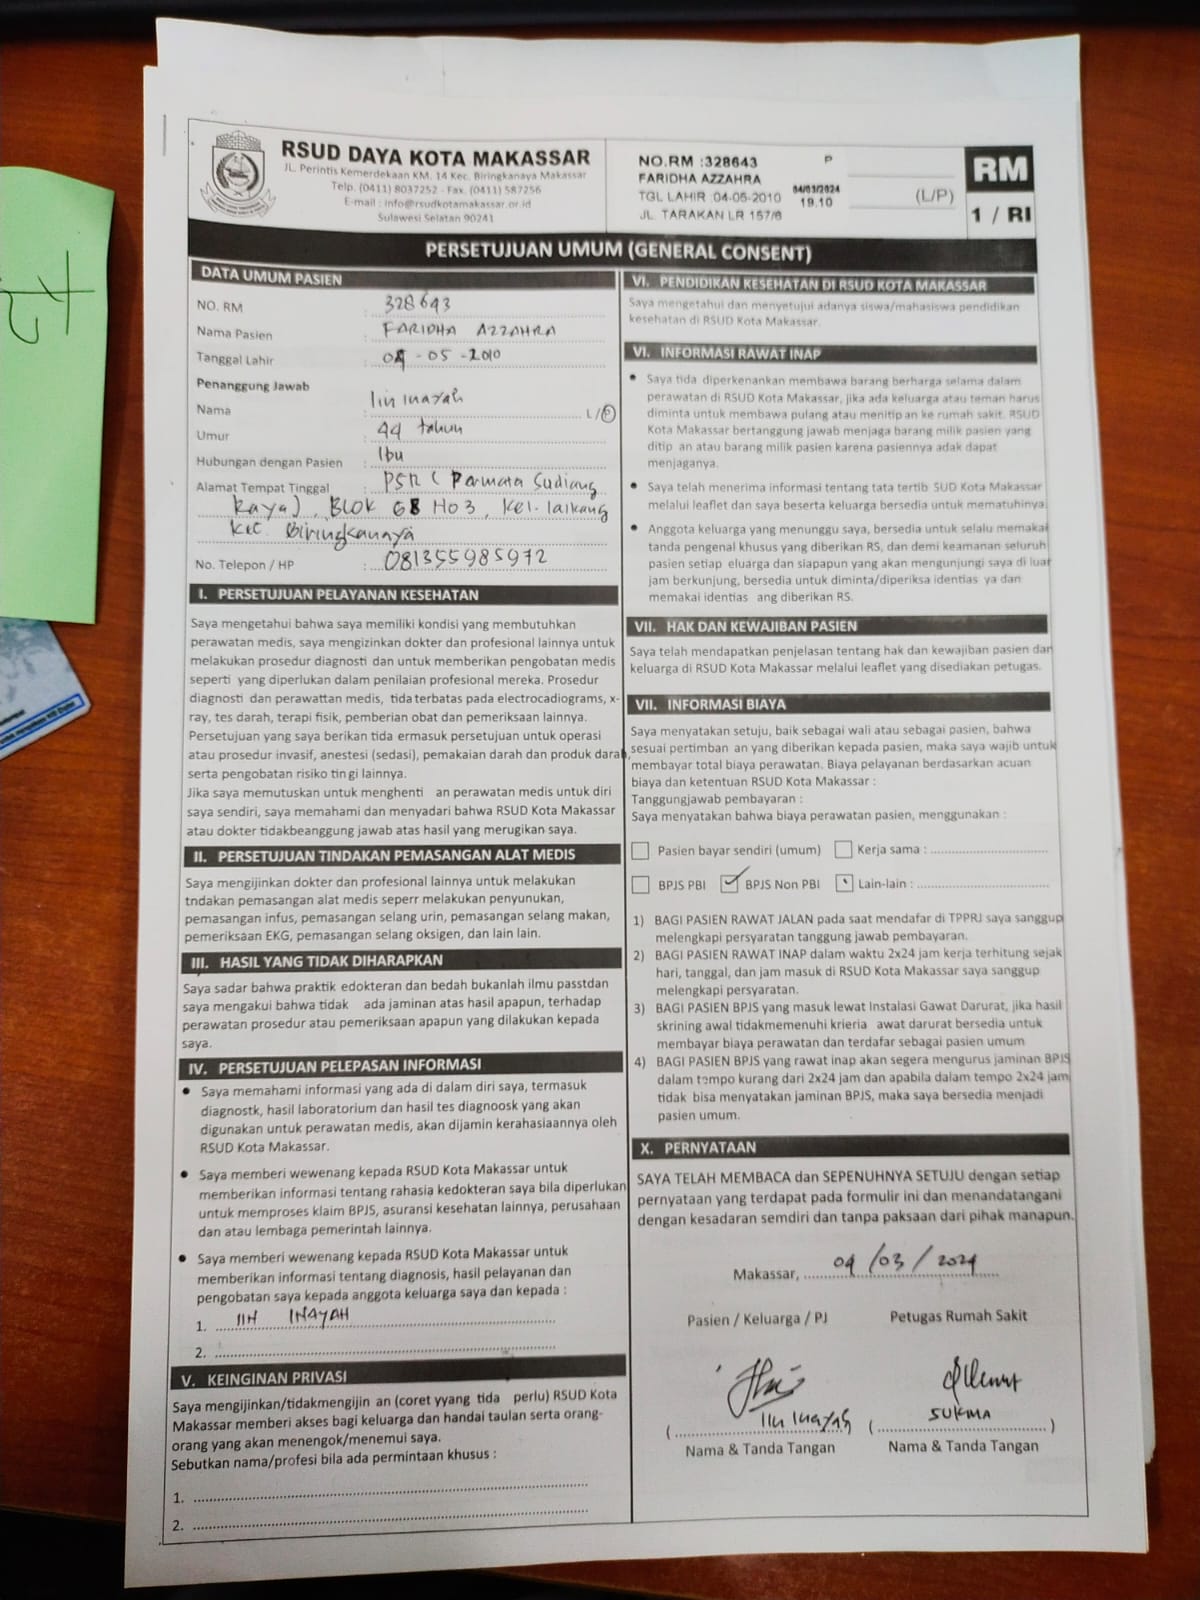 RSUD DAYA KOTA MAKASSAR
JL. Perintis Kemerdekaan KM. 14 Kec. Biringkanaya Makassar
Telp. (0411) 8037252 - Fax. (0411) 587256
E-mail : info@rsudkotamakassar.or.id
Sulawesi Selatan 90241
NO.RM :328643 P
FARIDHA AZZAHRA
TGL LAHIR :04-05-2010 04/03/2024
19.10
JL. TARAKAN LR 157/6
(L/P)
RM
1 / RI
PERSETUJUAN UMUM (GENERAL CONSENT)
DATA UMUM PASIEN
NO. RM : 328643
Nama Pasien : FARIDHA AZZAHRA
Tanggal Lahir : 04 -05 -2010
Penanggung Jawab
Nama : Iin Inayah L/P
Umur : 44 tahun
Hubungan dengan Pasien : Ibu
Alamat Tempat Tinggal : PSR ( Permata Sudiang
Raya), Blok G8 No3, Kel. Laikang
Kec. Biringkanaya
No. Telepon / HP : 081355985972
I. PERSETUJUAN PELAYANAN KESEHATAN
Saya mengetahui bahwa saya memiliki kondisi yang membutuhkan
perawatan medis, saya mengizinkan dokter dan profesional lainnya untuk
melakukan prosedur diagnosti dan untuk memberikan pengobatan medis
seperti yang diperlukan dalam penilaian profesional mereka. Prosedur
diagnosti dan perawattan medis, tida terbatas pada electrocadiograms, x-
ray, tes darah, terapi fisik, pemberian obat dan pemeriksaan lainnya.
Persetujuan yang saya berikan tida ermasuk persetujuan untuk operasi
atau prosedur invasif, anestesi (sedasi), pemakaian darah dan produk darah,
serta pengobatan risiko tin gi lainnya.
Jika saya memutuskan untuk menghenti an perawatan medis untuk diri
saya sendiri, saya memahami dan menyadari bahwa RSUD Kota Makassar
atau dokter tidakbeanggung jawab atas hasil yang merugikan saya.
II. PERSETUJUAN TINDAKAN PEMASANGAN ALAT MEDIS
Saya mengijinkan dokter dan profesional lainnya untuk melakukan
tndakan pemasangan alat medis seperr melakukan penyunukan,
pemasangan infus, pemasangan selang urin, pemasangan selang makan,
pemeriksaan EKG, pemasangan selang oksigen, dan lain lain.
III. HASIL YANG TIDAK DIHARAPKAN
Saya sadar bahwa praktik edokteran dan bedah bukanlah ilmu passtdan
saya mengakui bahwa tidak ada jaminan atas hasil apapun, terhadap
perawatan prosedur atau pemeriksaan apapun yang dilakukan kepada
saya.
IV. PERSETUJUAN PELEPASAN INFORMASI
• Saya memahami informasi yang ada di dalam diri saya, termasuk
diagnostk, hasil laboratorium dan hasil tes diagnoosk yang akan
digunakan untuk perawatan medis, akan dijamin kerahasiaannya oleh
RSUD Kota Makassar.
• Saya memberi wewenang kepada RSUD Kota Makassar untuk
memberikan informasi tentang rahasia kedokteran saya bila diperlukan
untuk memproses klaim BPJS, asuransi kesehatan lainnya, perusahaan
dan atau lembaga pemerintah lainnya.
• Saya memberi wewenang kepada RSUD Kota Makassar untuk
memberikan informasi tentang diagnosis, hasil pelayanan dan
pengobatan saya kepada anggota keluarga saya dan kepada :
1. IIN INAYAH
2.
V. KEINGINAN PRIVASI
Saya mengijinkan/tidakmengijin an (coret yyang tida perlu) RSUD Kota
Makassar memberi akses bagi keluarga dan handai taulan serta orang-
orang yang akan menengok/menemui saya.
Sebutkan nama/profesi bila ada permintaan khusus :
1.
2.
VI. PENDIDIKAN KESEHATAN DI RSUD KOTA MAKASSAR
Saya mengetahui dan menyetujui adanya siswa/mahasiswa pendidikan
kesehatan di RSUD Kota Makassar.
VI. INFORMASI RAWAT INAP
• Saya tida diperkenankan membawa barang berharga selama dalam
perawatan di RSUD Kota Makassar, jika ada keluarga atau teman harus
diminta untuk membawa pulang atau menitip an ke rumah sakit. RSUD
Kota Makassar bertanggung jawab menjaga barang milik pasien yang
ditip an atau barang milik pasien karena pasiennya adak dapat
menjaganya.
• Saya telah menerima informasi tentang tata tertib SUD Kota Makassar
melalui leaflet dan saya beserta keluarga bersedia untuk mematuhinya.
• Anggota keluarga yang menunggu saya, bersedia untuk selalu memakai
tanda pengenal khusus yang diberikan RS, dan demi keamanan seluruh
pasien setiap eluarga dan siapapun yang akan mengunjungi saya di luar
jam berkunjung, bersedia untuk diminta/diperiksa identias ya dan
memakai identias ang diberikan RS.
VII. HAK DAN KEWAJIBAN PASIEN
Saya telah mendapatkan penjelasan tentang hak dan kewajiban pasien dan
keluarga di RSUD Kota Makassar melalui leaflet yang disediakan petugas.
VII. INFORMASI BIAYA
Saya menyatakan setuju, baik sebagai wali atau sebagai pasien, bahwa
sesuai pertimban an yang diberikan kepada pasien, maka saya wajib untuk
membayar total biaya perawatan. Biaya pelayanan berdasarkan acuan
biaya dan ketentuan RSUD Kota Makassar :
Tanggungjawab pembayaran :
Saya menyatakan bahwa biaya perawatan pasien, menggunakan :
Pasien bayar sendiri (umum) Kerja sama :
BPJS PBI ✓ BPJS Non PBI Lain-lain :
1) BAGI PASIEN RAWAT JALAN pada saat mendafar di TPPRJ saya sanggup
melengkapi persyaratan tanggung jawab pembayaran.
2) BAGI PASIEN RAWAT INAP dalam waktu 2x24 jam kerja terhitung sejak
hari, tanggal, dan jam masuk di RSUD Kota Makassar saya sanggup
melengkapi persyaratan.
3) BAGI PASIEN BPJS yang masuk lewat Instalasi Gawat Darurat, jika hasil
skrining awal tidakmemenuhi krieria awat darurat bersedia untuk
membayar biaya perawatan dan terdafar sebagai pasien umum
4) BAGI PASIEN BPJS yang rawat inap akan segera mengurus jaminan BPJS
dalam tempo kurang dari 2x24 jam dan apabila dalam tempo 2x24 jam
tidak bisa menyatakan jaminan BPJS, maka saya bersedia menjadi
pasien umum.
X. PERNYATAAN
SAYA TELAH MEMBACA dan SEPENUHNYA SETUJU dengan setiap
pernyataan yang terdapat pada formulir ini dan menandatangani
dengan kesadaran semdiri dan tanpa paksaan dari pihak manapun.
Makassar, 04 /03 / 2024
Pasien / Keluarga / PJ Petugas Rumah Sakit
( Iin Inayah ) ( SUKMA )
Nama & Tanda Tangan Nama & Tanda Tangan